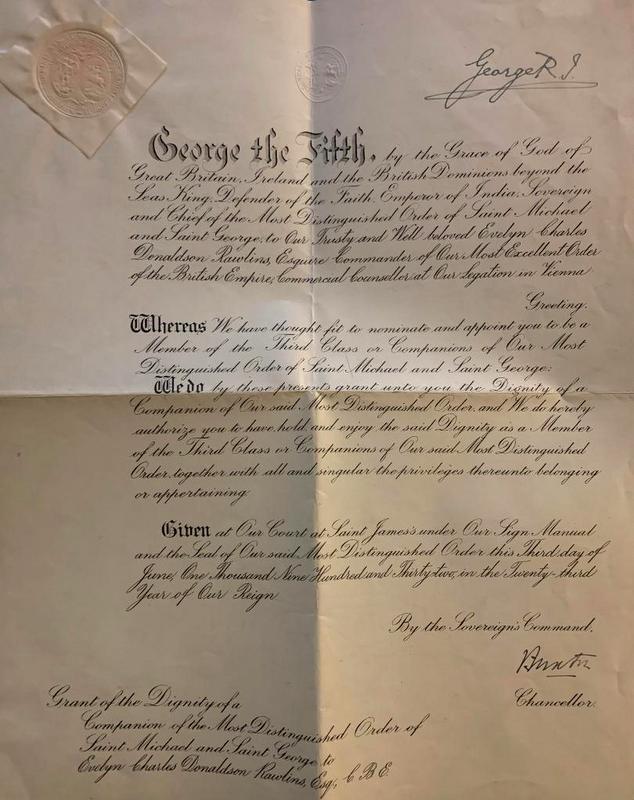 George R.I.
George the Fifth, by the Grace of God of
Great Britain, Ireland and the British Dominions beyond the
Seas King, Defender of the Faith, Emperor of India, Sovereign
and Chief of the Most Distinguished Order of Saint Michael
and Saint George, to Our Trusty and Well beloved Evelyn Charles
Donaldson Rawlins, Esquire Commander of Our Most Excellent Order
of the British Empire, Commercial Counsellor at Our Legation in Vienna
Greeting.
Whereas We have thought fit to nominate and appoint you to be a
Member of the Third Class or Companions of Our Most
Distinguished Order of Saint Michael and Saint George:
We do by these presents grant unto you the Dignity of a
Companion of Our said Most Distinguished Order, and We do hereby
authorize you to have, hold, and enjoy the said Dignity as a Member
of the Third Class or Companions of Our said Most Distinguished
Order, together with all and singular the privileges thereunto belonging
or appertaining.
Given at Our Court at Saint James's under Our Sign Manual
and the Seal of Our said Most Distinguished Order this Third day of
June, One Thousand Nine Hundred and Thirty-two, in the Twenty-third
Year of Our Reign
By the Sovereign's Command,
Chancellor.
Grant of the Dignity of a
Companion of the Most Distinguished Order of
Saint Michael and Saint George to
Evelyn Charles Donaldson Rawlins, Esq., C B E.